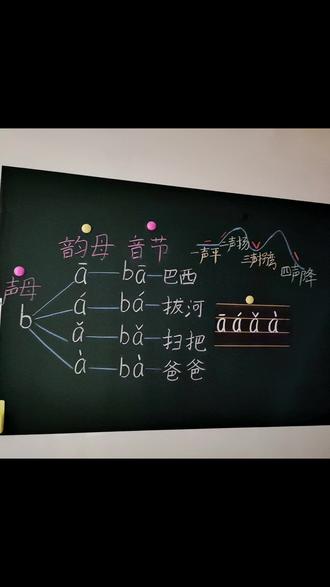 声母 韵母 音节
b
ā bā 巴西
á bá 拔河
ǎ bǎ 扫把
à bà 爸爸
一声平 二声扬 三声拐弯 四声降
ā á ǎ à